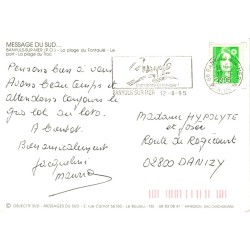 MESSAGE DU SUD...
BANYULS-SUR-MER (P.O.) - La plage du Fontaulé - Le
port - La plage du Troc.
Pensons bien à vous
Avons beau temps et
attendons toujours le
gros lot du loto.
A bientôt.
Bien amicalement
Jacqueline
Maurice
BANYULS SUR MER 12-8-95
Madame HYPOLYTE
et José
Route de Rogécourt
02800 DANIZY
© OBJECTIF SUD - MESSAGES DU SUD -